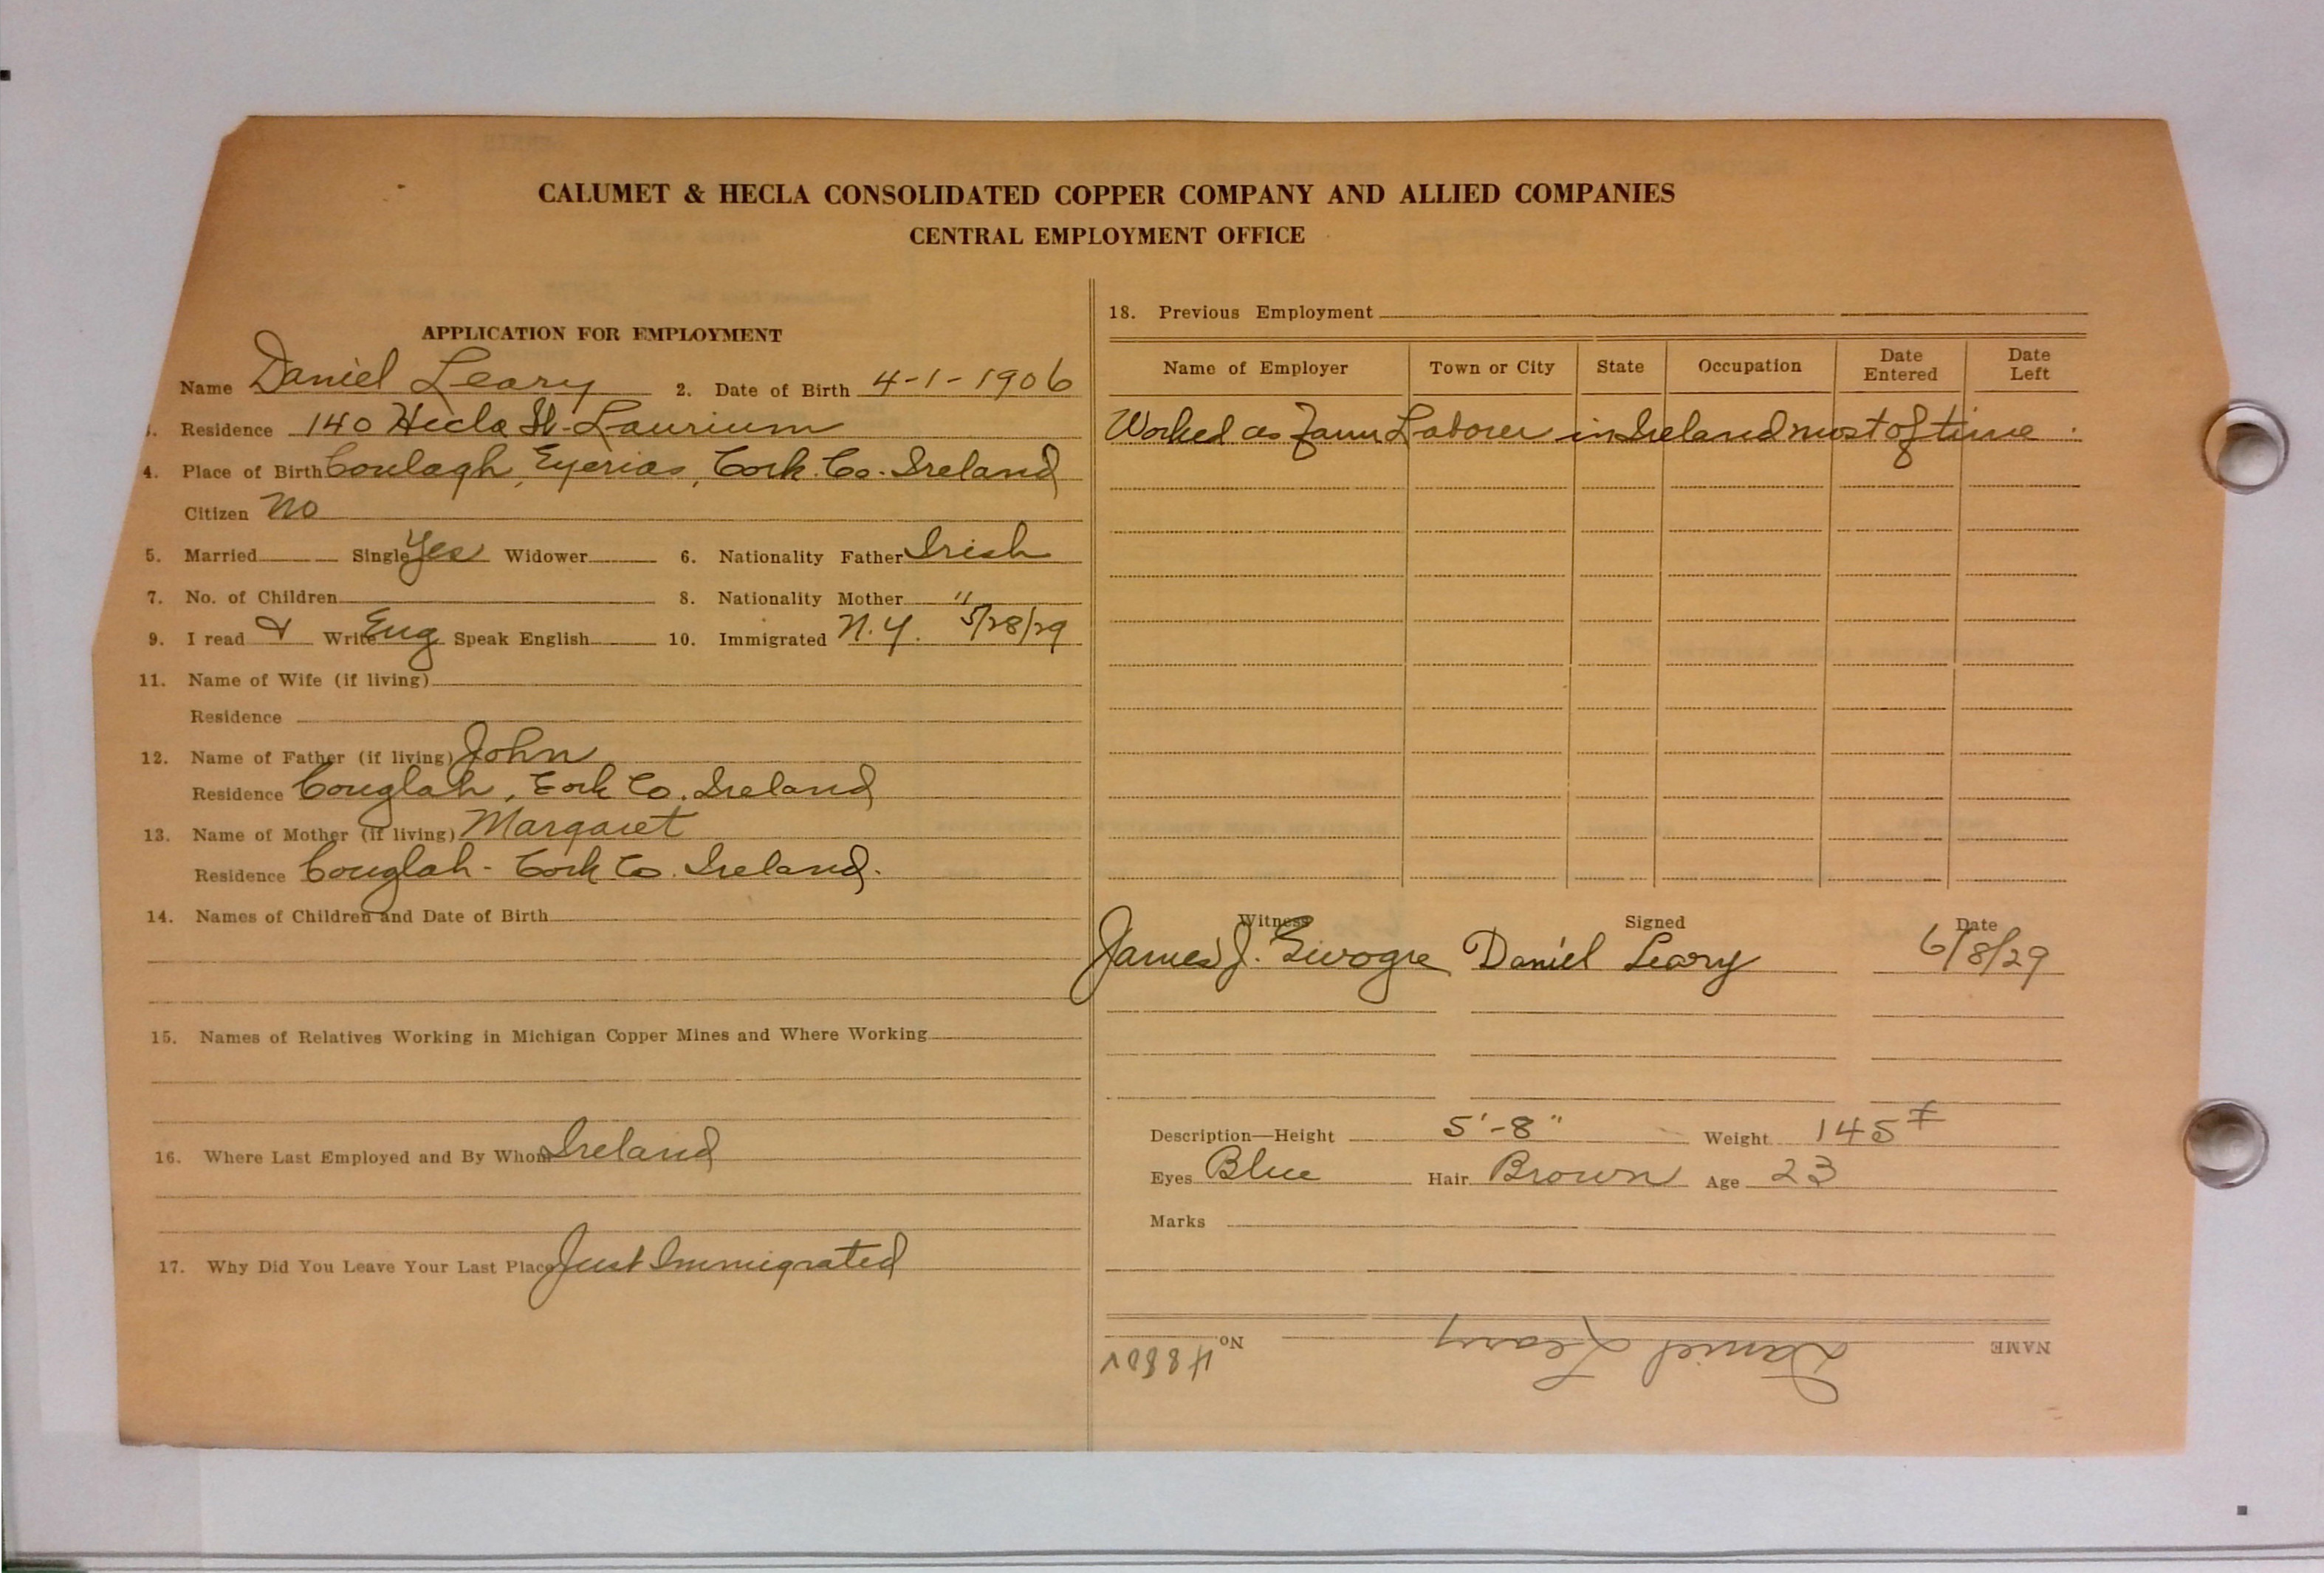 CALUMET & HECLA CONSOLIDATED COPPER COMPANY AND ALLIED COMPANIES
CENTRAL EMPLOYMENT OFFICE
APPLICATION FOR EMPLOYMENT
Name Daniel Leary 2. Date of Birth 4-1-1906
3. Residence 140 Hecla St - Laurium
4. Place of Birth Coulagh, Eyerias, Cork. Co. Ireland
Citizen No
5. Married Single Yes Widower 6. Nationality Father Irish
7. No. of Children 8. Nationality Mother "
9. I read & Write Eng Speak English 10. Immigrated N.Y. 5/28/29
11. Name of Wife (if living)
Residence
12. Name of Father (if living) John
Residence Couglah, Cork Co. Ireland
13. Name of Mother (if living) Margaret
Residence Couglah - Cork Co. Ireland.
14. Names of Children and Date of Birth
15. Names of Relatives Working in Michigan Copper Mines and Where Working
16. Where Last Employed and By Whom Ireland
17. Why Did You Leave Your Last Place Just Immigrated
18. Previous Employment
Name of Employer Town or City State Occupation Date Entered Date Left
Worked as Farm Laborer in Ireland most of time.
Witness Signed Date
James J. Daniel Leary 6/8/29
Description—Height 5'-8" Weight 145#
Eyes Blue Hair Brown Age 23
Marks
NAME Daniel Leary No